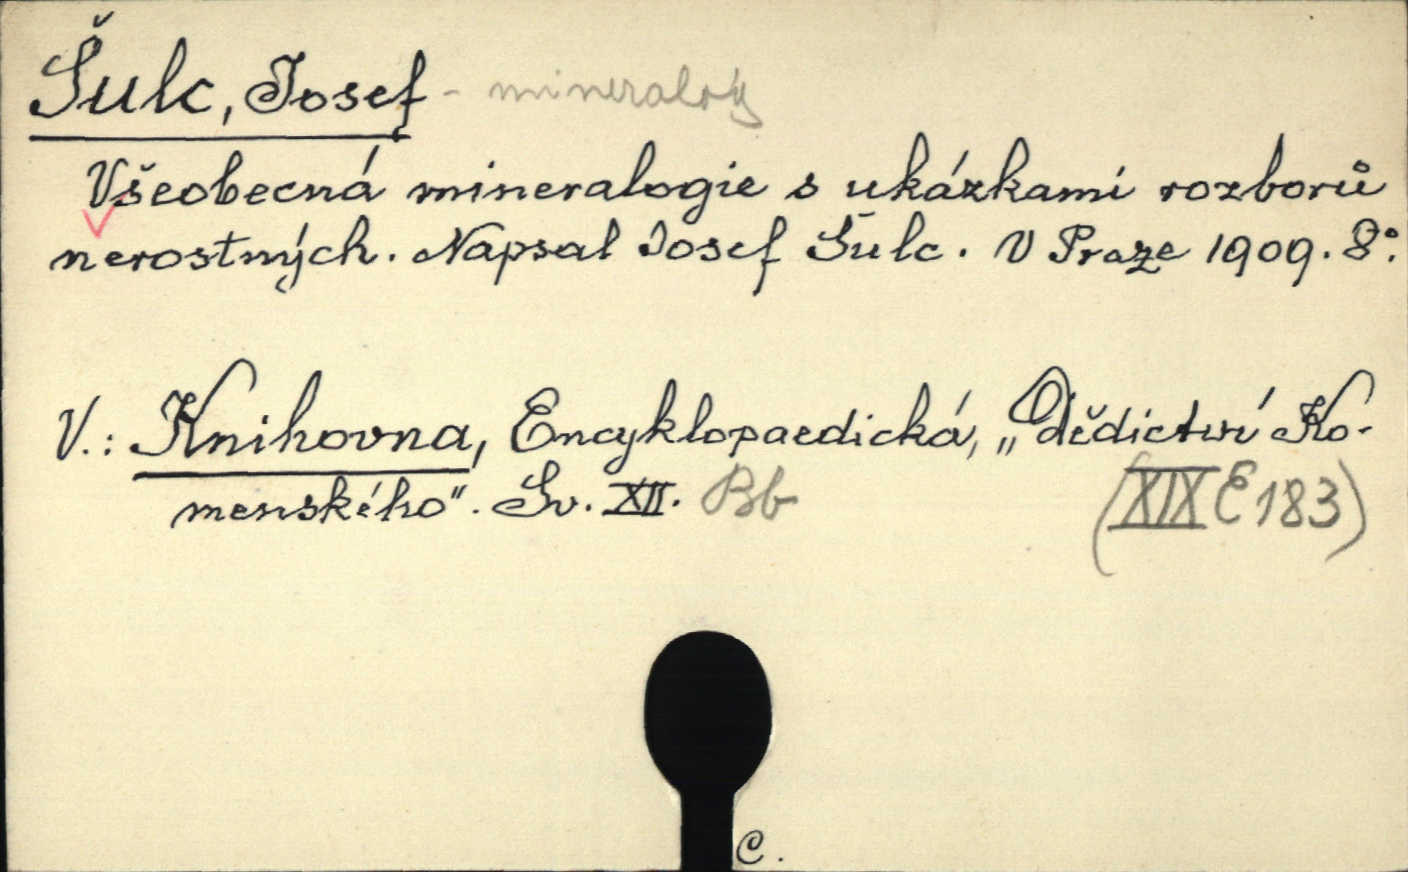 Šulc, Josef - mineralog
Všeobecná mineralogie s ukázkami rozborů
nerostných. Napsal Josef Šulc. V Praze 1909. 8°.
V.: Knihovna, Encyklopaedická, „Dědictví Ko-
menského". Sv. XII. Bb (XIX E 183)
C.